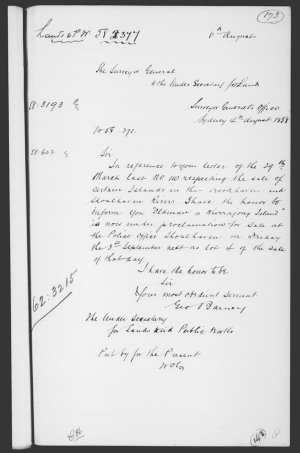 173
Lands & P.W. 58 2377
6th August
The Surveyor General
to the Under Secretary for Lands
58:3193
Surveyor General's Office
Sydney 4th August 1858
No 58. 271.
58:602
Sir
In reference to your letter of the 29th
March last No. 110 respecting the sale of
certain Islands in the Crookhaven and
Shoalhaven Rivers. I have the honor to
inform you Oldman or Numrayong Island"
is now under proclamation for sale at
the Police Office Shoalhaven on Friday
the 3rd September next as lot 4 of the sale
of that day
I have the honor to be
Sir
Your most obedient servant
Geo Barney
62:3215
The Under Secretary
for Lands and Public Works
Put by for the Present